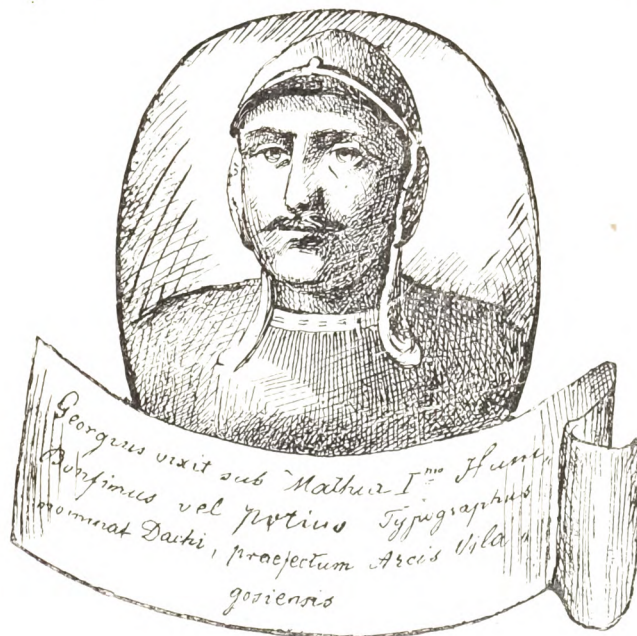 Georgius vixit sub Mathia I<sup>mo</sup> Huni
Bonfinius vel potius Typographus
nominat Dachi, praefectum Arcis Vila„
gosiensis